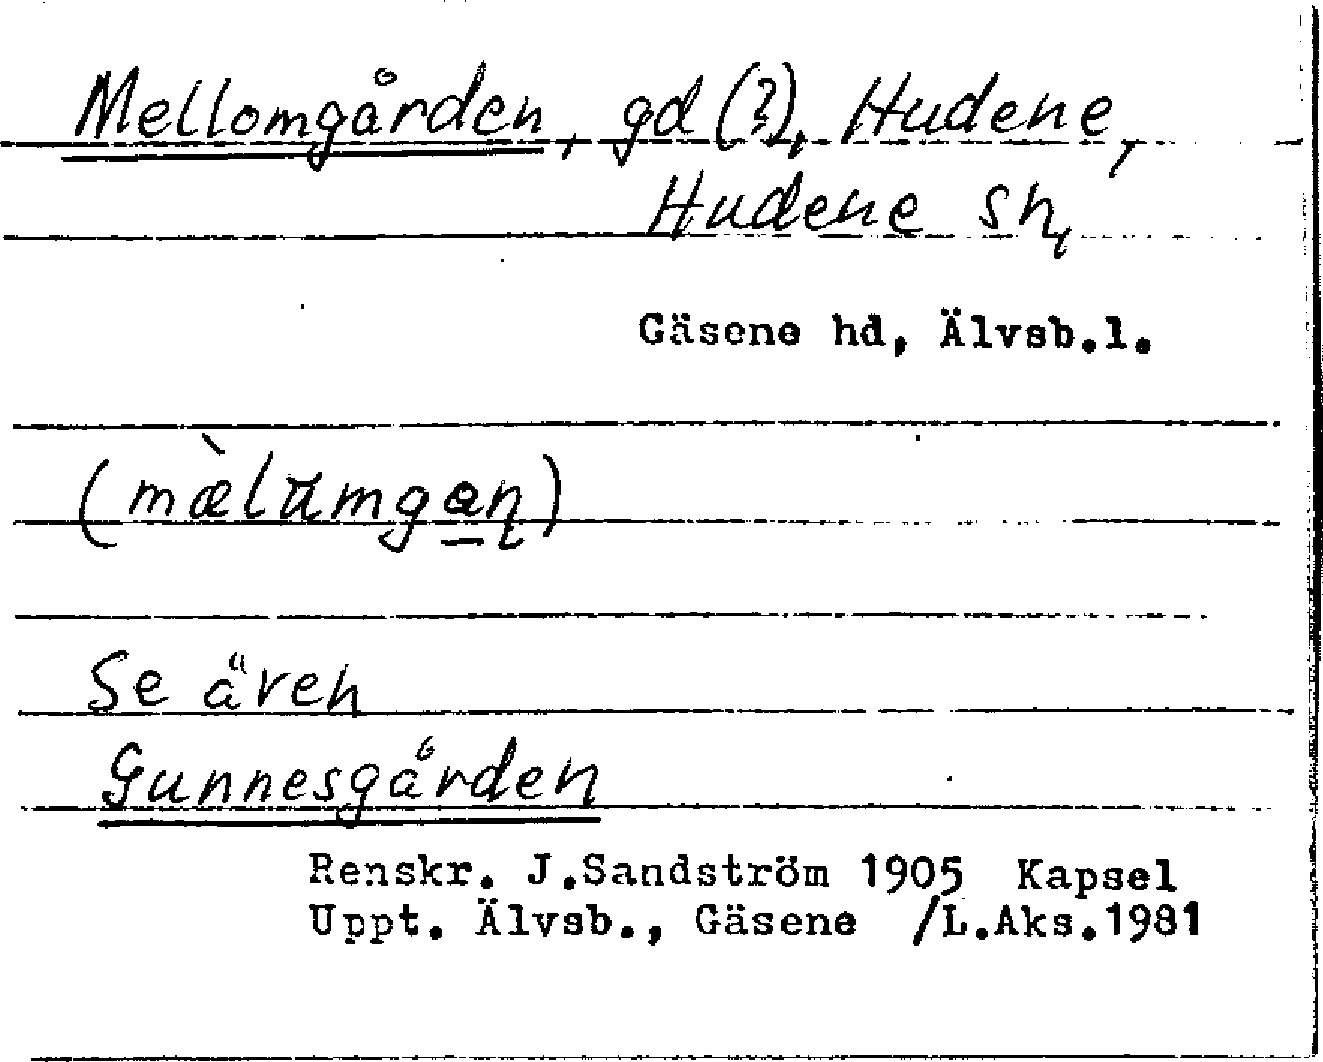 Mellomgården, gd (?), Hudene,
Hudene sn,
Gäsene hd, Älvsb.l.
(mæ̀lumgan̨)
Se även
Gunnesgården
Renskr. J.Sandström 1905 Kapsel
Uppt. Älvsb., Gäsene /L.Aks.1981